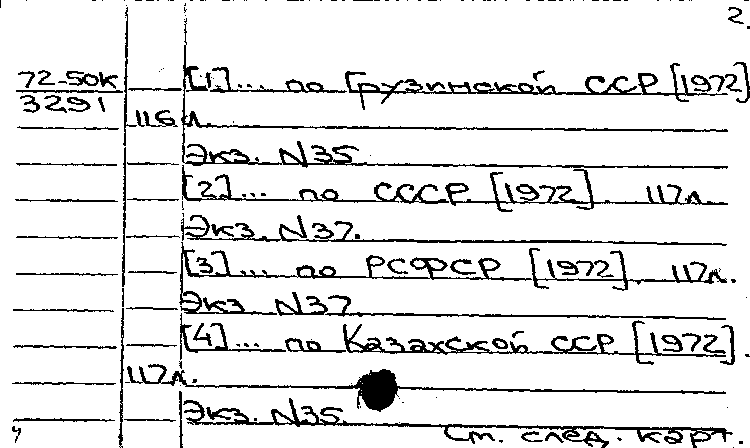 2.
72-50к
3291
[1.]... по Грузинской ССР [1972]
116 л.
Экз. N35.
[2.]... по СССР. [1972]. 117л.
Экз. N37.
[3.]... по РСФСР [1972]. 117л.
Экз. N37.
[4.]... по Казахской ССР. [1972].
117л.
Экз. N35.
См. след. карт.